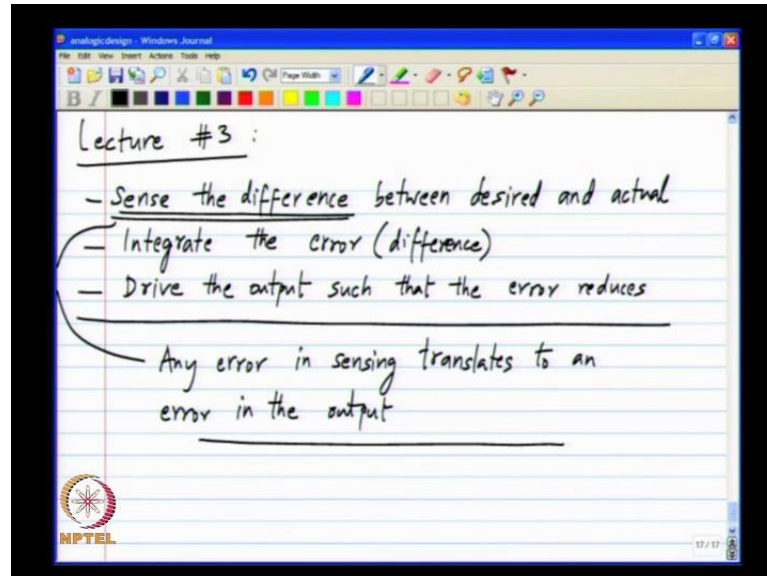 analogicdesign - Windows Journal
File Edit View Insert Actions Tools Help
Page Width
B I
Lecture #3 :
- Sense the difference between desired and actual
- Integrate the error (difference)
- Drive the output such that the error reduces
Any error in sensing translates to an
error in the output
NPTEL
17/17